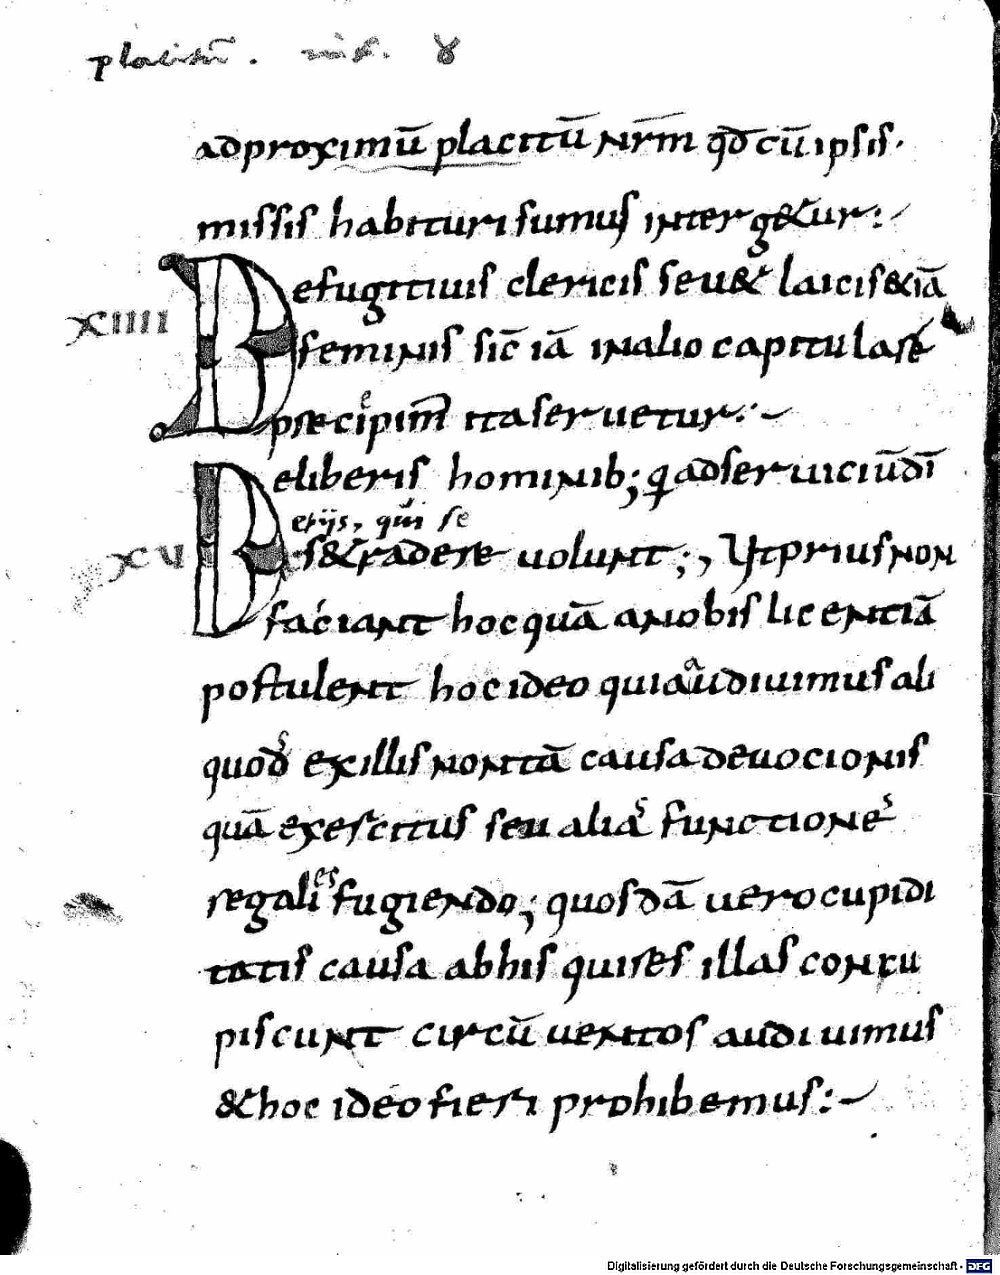 placitū. nr̄. 8
ad proximū placitū nr̄m qd̄ cū ipsis.
missis habituri sumus interg&ur:
De fugitiuis clericis seu & laicis & iā
XIIII
feminis sic̄ iā in alio capitula se
p̄recipim̄ ita seruetur:
De liberis hominib; q ad seruiciū dī
etijs, qui se
XV
s& radere uolunt; Ut prius non
faciant hoc quā a nobis licentiā
postulent hoc ideo quia audiuimus ali
quos ex illis non tā causa deuocionis
quā exercitus seu alias functiones
regalies fugiendo; quosdā uero cupidi
tatis causa ab his qui res illas concu
piscunt circūuentos audiuimus
& hoc ideo fieri prohibemus:
Digitalisierung gefördert durch die Deutsche Forschungsgemeinschaft - DFG